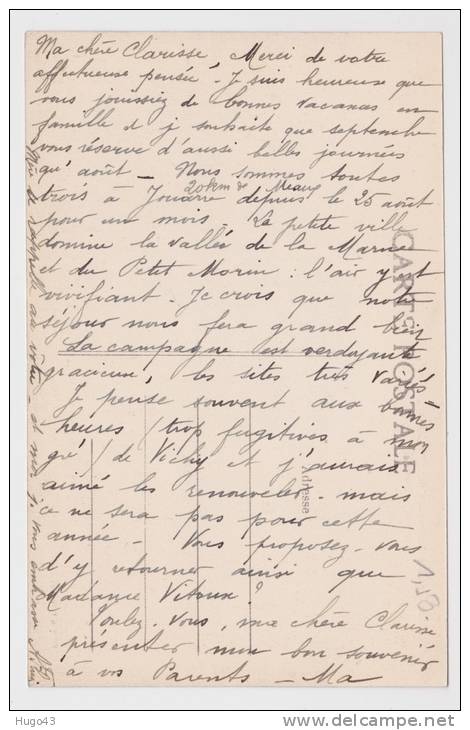 Ma chère Clarisse, Merci de votre
affectueuse pensée. Je suis heureuse que
vous jouissiez de bonnes vacances en
famille et je souhaite que septembre
vous réserve d'aussi belles journées
qu'août - Nous sommes toutes
trois à Jouarre depuis le 25 août
20 km de Meaux
pour un mois. La petite ville
domine la vallée de la Marne
et du Petit Morin : l'air y est
vivifiant. Je crois que notre
séjour nous fera grand bien
La campagne est verdoyante
gracieuse, les sites très variés -
Je pense souvent aux bonnes
heures trop fugitives à mon
gré de Vichy et j'aurais
aimé les renouveler - mais
ce ne sera pas pour cette
année - Vous proposez-vous
d'y retourner ainsi que
Madame Vitoux ?
Voulez-vous, ma chère Clarisse
présenter mon bon souvenir
à vos Parents - Ma
Mère se rappelle au vôtre et moi je vous embrasse
CARTE POSTALE
Adresse
1,50
Hugo43
delcampe.net